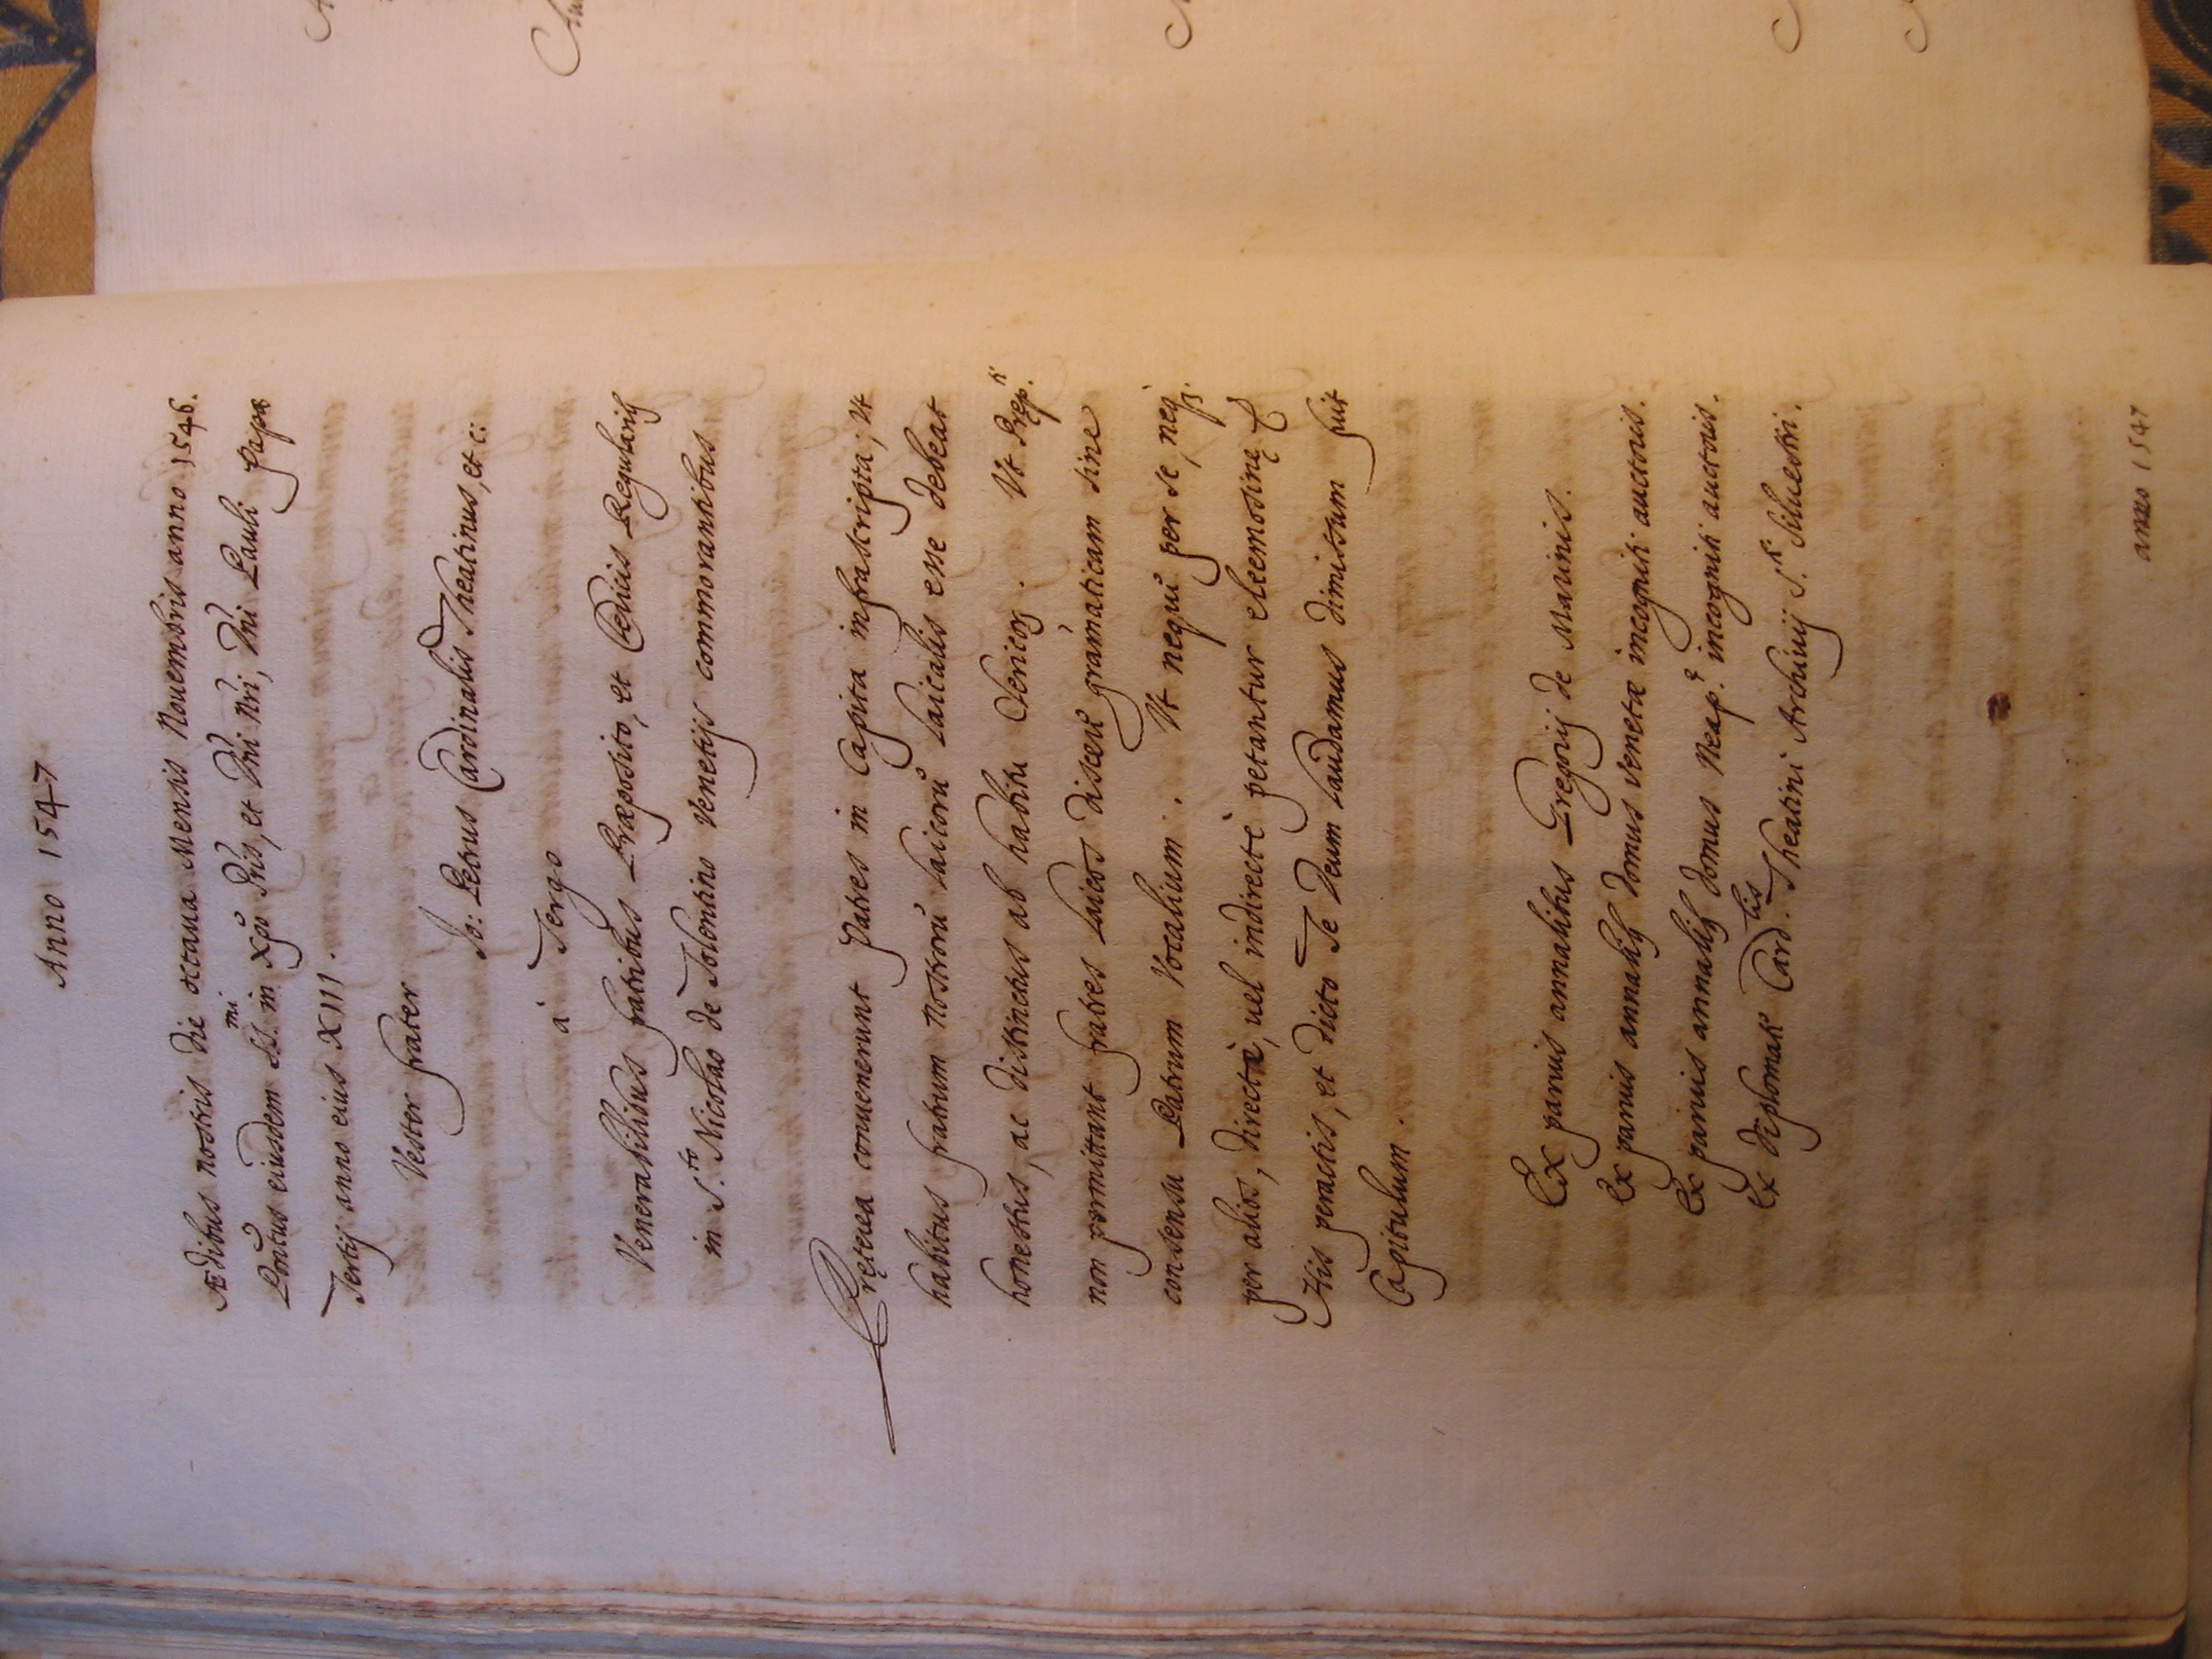 Anno 1547
Ædibus nostris die octaua Mensis Nouembris anno 1546.
Pontus eiusdem SS.mi in Xpo Pris, et Dni Nri, Dni Pauli Papæ
Tertij anno eius XIII.
Vester frater
Io: Petrus Cardinalis Theatinus, et c:
à Tergo
Venerabilibus fratribus Præposito, et Clericis Regularib
in S.to Nicolao de Tolentino Venetijs commorantibus
Pręterea conuenerunt Patres in Capita infrascripta; Vt
habitus fratrum nostrorū laicorū laicalis esse debeat
honestus, ac distinctus ab habitu Clericoꝝ. Vt Pręp.ti
non permittant fratres laicos discere grāmaticam sine
consensu Patrum Vocalium. Vt neque per se, neq;
per alios, directè, uel indirectè petantur eleemosinę
His peractis, et dicto Te Deum laudamus dimissum fuit
Capitulum.
Ex paruis annalibus Gregorij de Marinis.
Ex paruis annalib domus Venetæ incogniti auctoris.
Ex paruis annalib domus Neap.e incogniti auctoris.
Ex diplomate Card.lis Theatini Archiuij S.ti Siluestri.
anno 1547